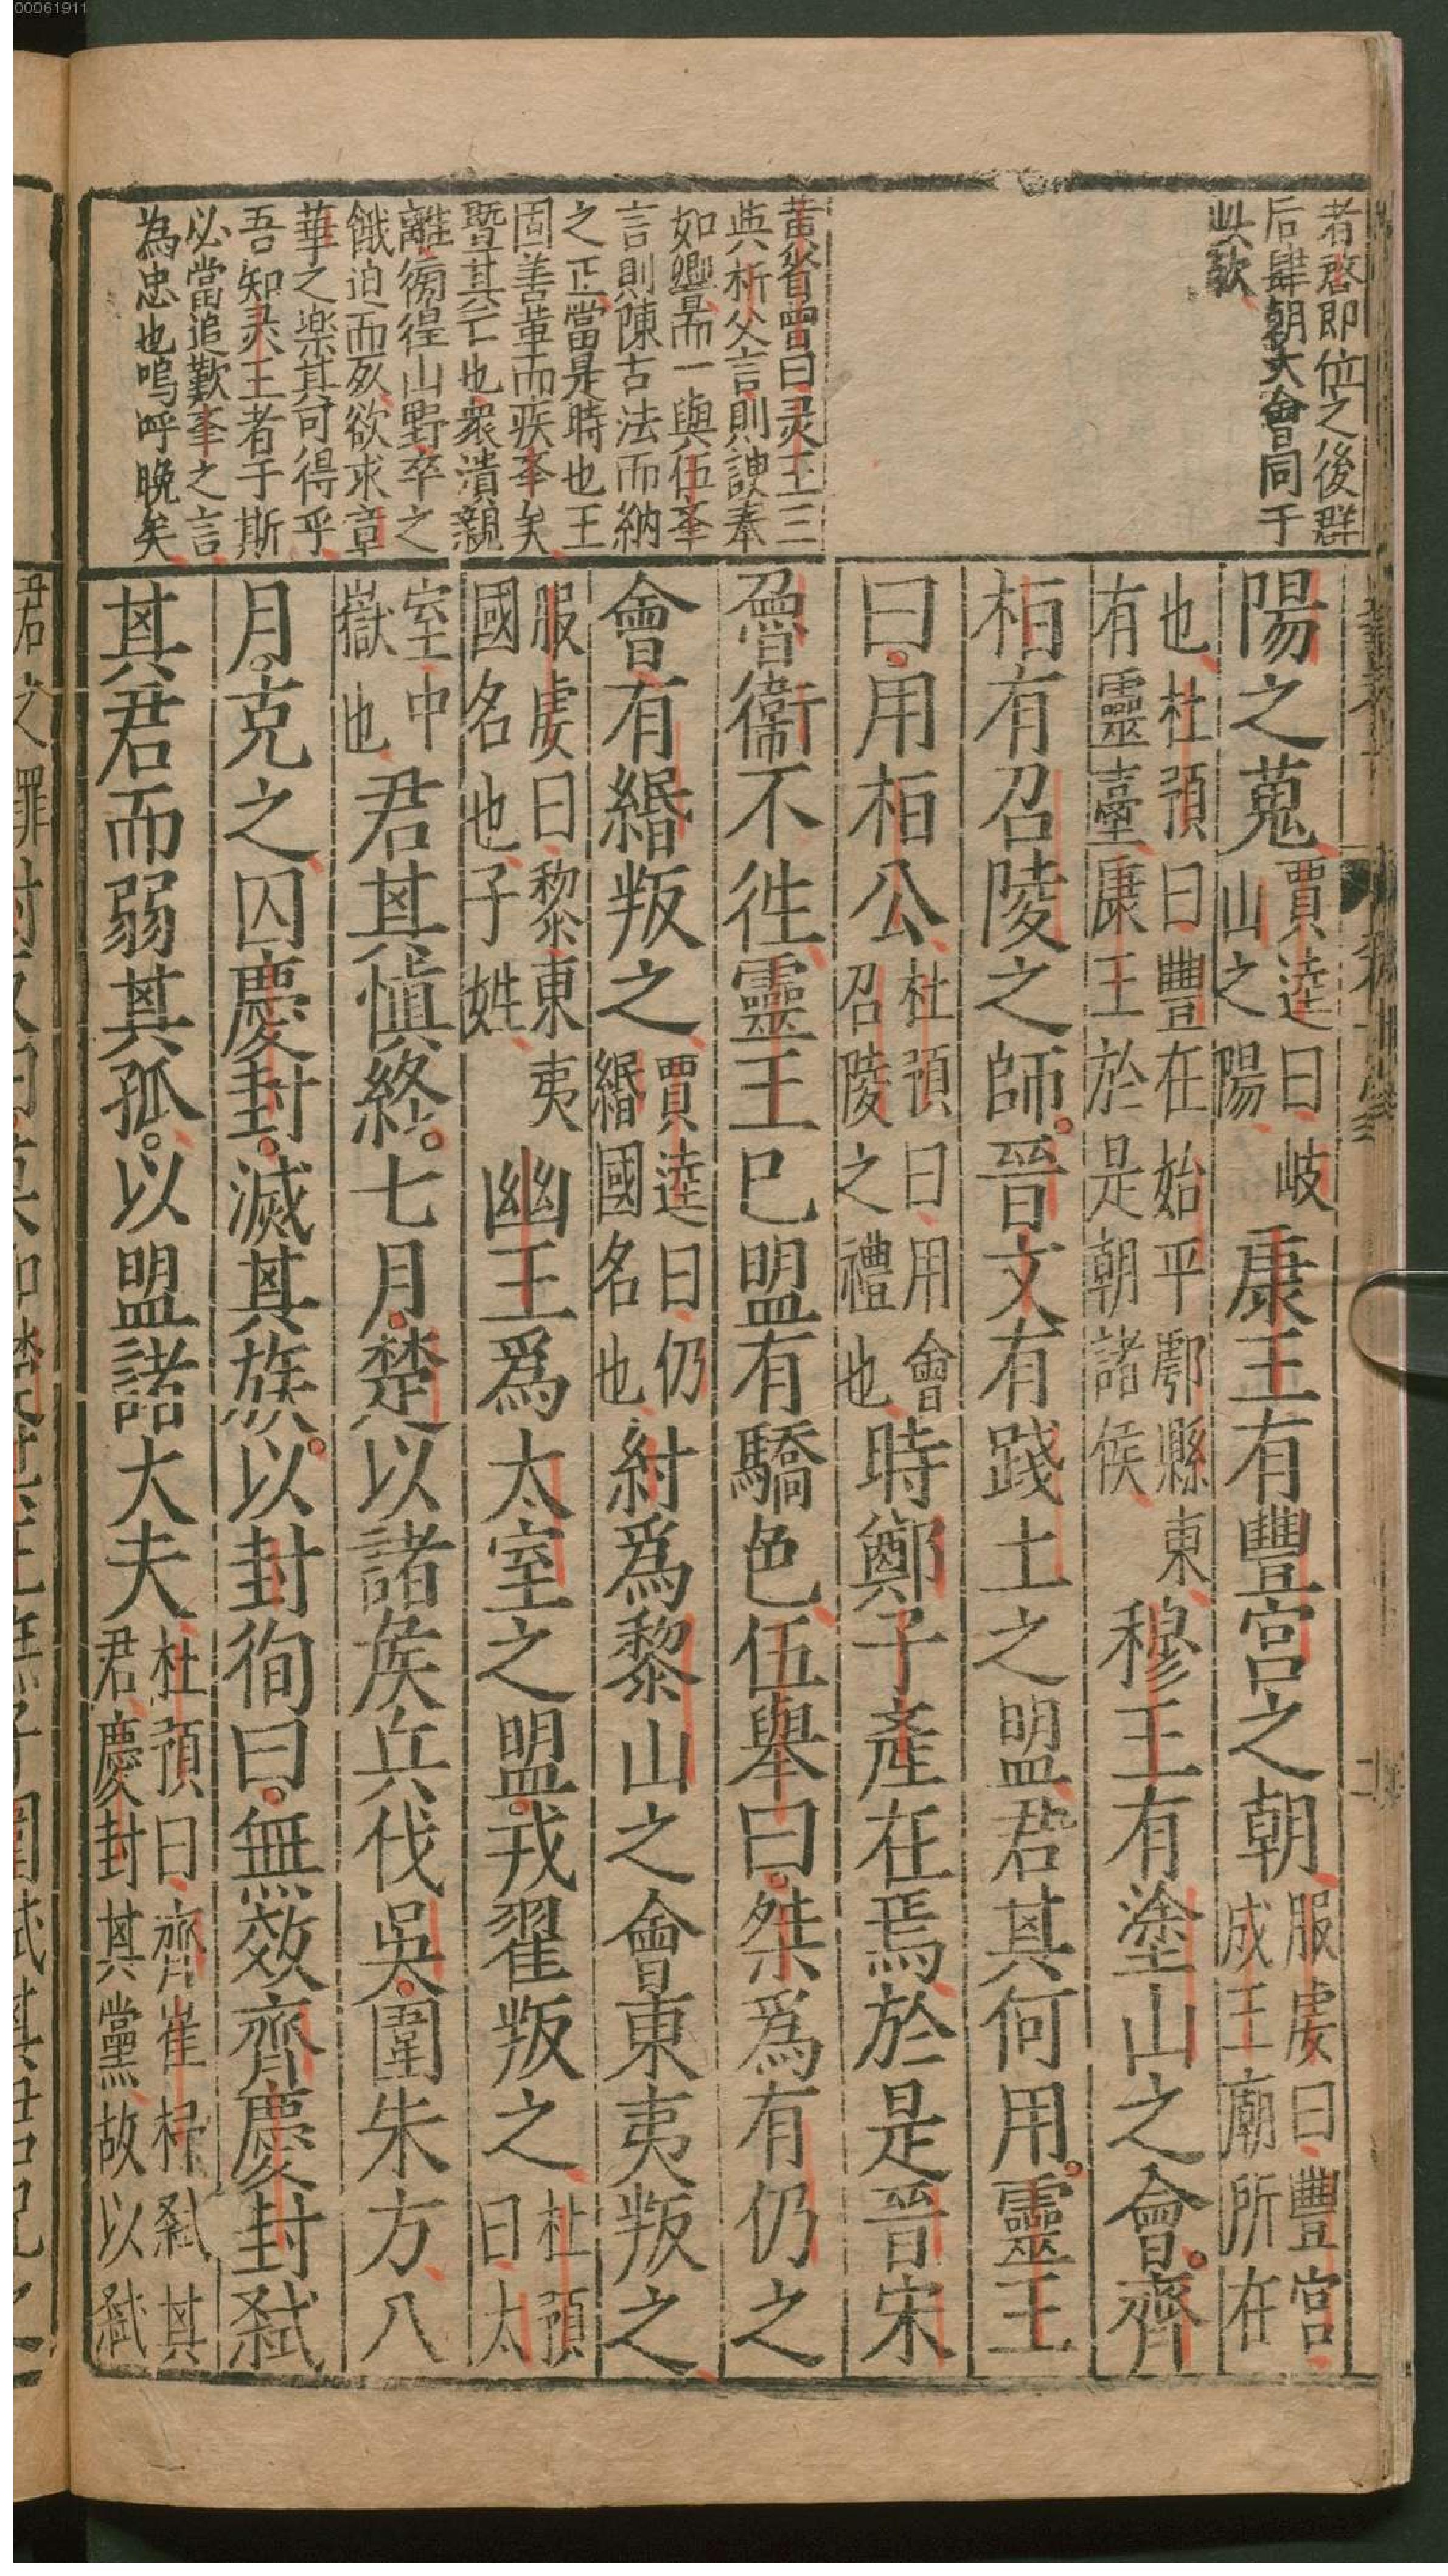 00061911
者啓即位之後群
后肆朝大會同于
此歟
黄省曽曰灵王三
與析父言則諛奉
如響而一與伍奉
言則陳古法而納
之正當是時也王
固善董而疾奉矣
暨其亡也衆潰親
離徬徨山野卒之
餓迫而死欲求章
華之楽其可得乎
吾知灵王者于斯
必當追歎奉之言
為忠也嗚呼晚矣
陽之蒐賈逵曰岐山之陽康王有豐宮之朝服虔曰豐宮成王廟所在
也杜預曰豐在始平鄠縣東有靈臺康王於是朝諸侯穆王有塗山之會齊
栢有召陵之師晉文有踐土之盟君其何用靈王
曰用栢公杜預曰用會召陵之禮也時鄭子產在焉於是晉宋
魯衛不徃靈王已盟有驕色伍舉曰桀爲有仍之
會有緡叛之賈逵曰仍緡國名也紂爲黎山之會東夷叛之
服虔曰黎東夷國名也子姓幽王爲太室之盟戎翟叛之杜預曰太
室中嶽也君其愼終七月楚以諸侯兵伐吳圍朱方八
月克之囚慶封滅其族以封徇曰無效齊慶封弒
其君而弱其孤以盟諸大夫杜預曰齊崔杼弒其君慶封其黨故以弒